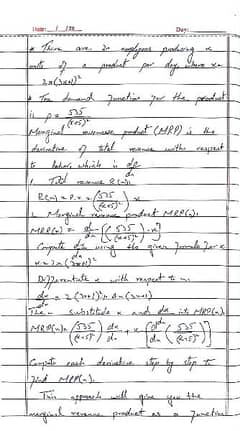 Date: __/__/20__ Day:
* There are n employees producing x
units of a product per day, where x=
2n(3n+1)²
* The demand function for the product
is p = 535/(x+5)²
Marginal revenue product (MRP) is the
derivative of total revenue with respect
to labor, which is dR/dn
1. Total revenue R(n),
R(n) = P.x = (535/(x+5)²) x
2. Marginal revenue product MRP(n),
MRP(n) = d/dn [(535/(x+5)²).x]
Compute dx/dn using the given formula for x
x = 2n(3n+1)²
Differentiate x with respect to n.
The substitute x and dx/dn into MRP(n)
MRP(n) = (535/(x+5)²) dx/dn + x (d/dn (535/(x+5)²))
Compute each derivative step by step to
find MRP(n).
This approach will give you the
marginal revenue product as a function